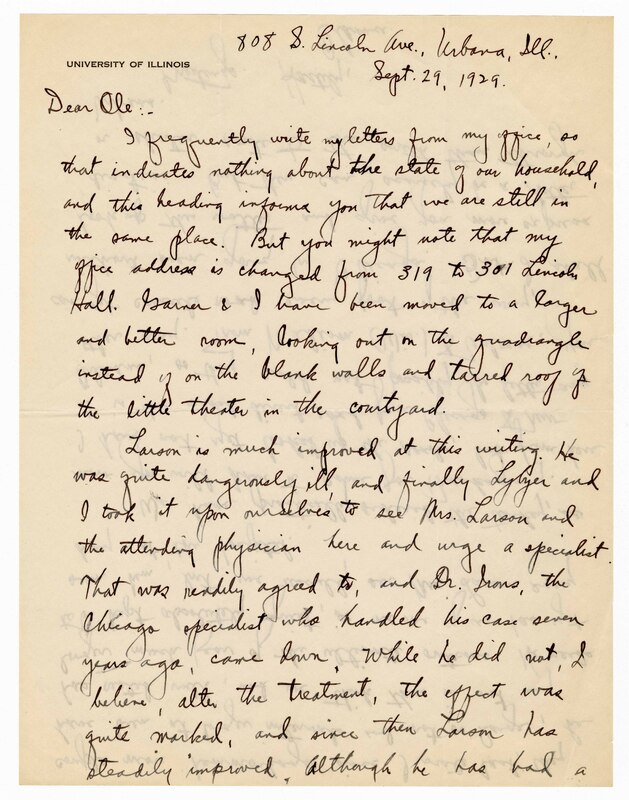 808 S. Lincoln Ave., Urbana, Ill.
UNIVERSITY OF ILLINOIS
Sept. 29, 1929.
Dear Ole:-
I frequently write my letters from my office, so
that indicates nothing about the state of our household,
and this heading informs you that we are still in
the same place. But you might note that my
office address is changed from 319 to 301 Lincoln
Hall. Garner & I have been moved to a larger
and better room, looking out on the quadrangle
instead of on the blank walls and tarred roof of
the little theater in the courtyard.
Larson is much improved at this writing. He
was quite dangerously ill, and finally Lybyer and
I took it upon ourselves to see Mrs. Larson and
the attending physician here and urge a specialist.
That was readily agreed to, and Dr. Irons, the
Chicago specialist who handled his case seven
years ago, came down. While he did not, I
believe, alter the treatment, the effect was
quite marked, and since then Larson has
steadily improved. Although he has had a